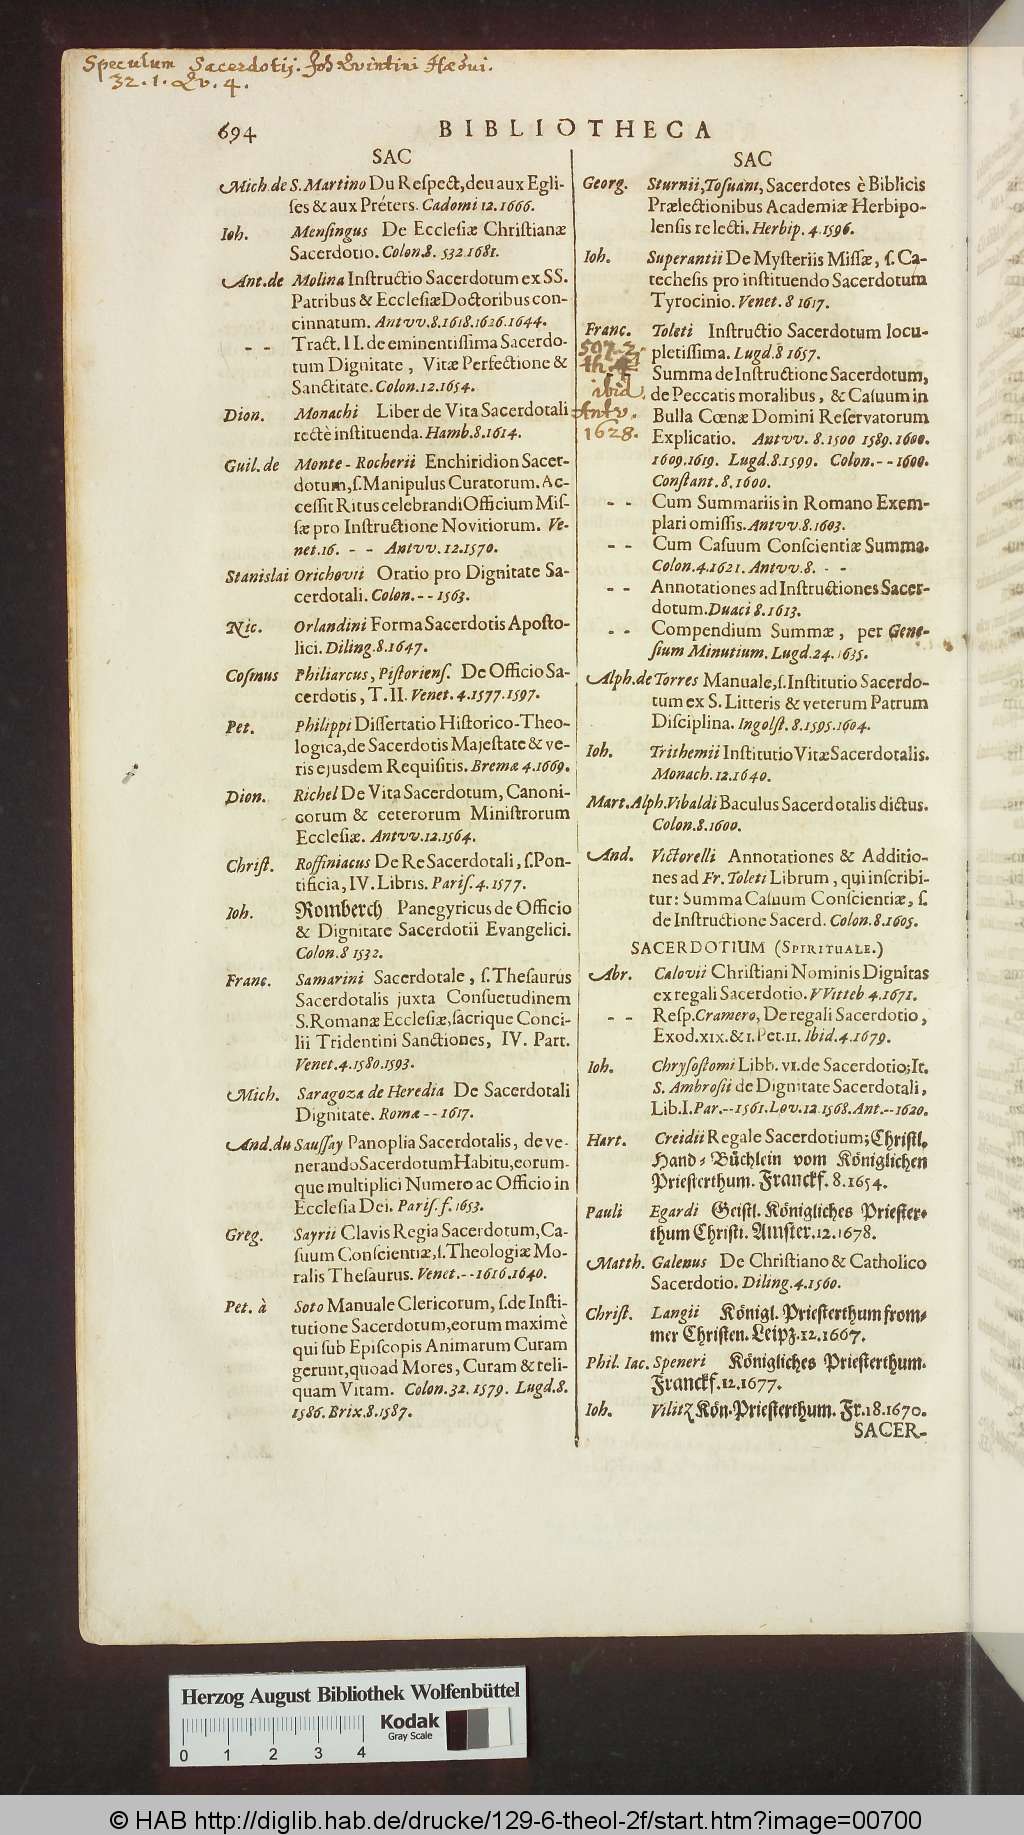 Speculum Sacerdotij. Joh Quintini Hædui.
32.1. Qv. 4.
694
BIBLIOTHECA
SAC
Mich. de S. Martino Du Respect, deu aux Egli-
ses & aux Préters. Cadomi 12. 1666.
Ioh. Mensingus De Ecclesiæ Christianæ
Sacerdotio. Colon.8. 532 1681.
Ant. de Molina Instructio Sacerdotum ex SS.
Patribus & Ecclesiæ Doctoribus con-
cinnatum. Antvv.8.1618.1626.1644.
- - Tract. II. de eminentissima Sacerdo-
tum Dignitate, Vitæ Perfectione &
Sanctitate. Colon.12.1654.
Dion. Monachi Liber de Vita Sacerdotali
rectè instituenda. Hamb.8.1614.
Guil. de Monte-Rocherii Enchiridion Sacer-
dotum, s. Manipulus Curatorum. Ac-
cessit Ritus celebrandi Officium Mis-
sæ pro Instructione Novitiorum. Ve-
net.16. - - Antvv.12.1570.
Stanislai Orichovii Oratio pro Dignitate Sa-
cerdotali. Colon. - - 1563.
Nic. Orlandini Forma Sacerdotis Aposto-
lici. Diling.8.1647.
Cosmus Philiarcus, Pistoriens. De Officio Sa-
cerdotis, T. II. Venet. 4.1577.1597.
Pet. Philippi Dissertatio Historico-Theo-
logica, de Sacerdotis Majestate & ve-
ris ejusdem Requisitis. Bremæ 4.1669.
Dion. Richel De Vita Sacerdotum, Canoni-
corum & ceterorum Ministrorum
Ecclesiæ. Antvv.12.1564.
Christ. Roffiniacus De Re Sacerdotali, s. Pon-
tificia, IV. Libris. Paris. 4. 1577.
Ioh. Romberch Panegyricus de Officio
& Dignitate Sacerdotii Evangelici.
Colon.8 1532.
Franc. Samarini Sacerdotale, s. Thesaurus
Sacerdotalis juxta Consuetudinem
S. Romanæ Ecclesiæ, sacrique Conci-
lii Tridentini Sanctiones, IV. Part.
Venet.4.1580.1593.
Mich. Saragoza de Heredia De Sacerdotali
Dignitate. Romæ - - 1617.
And. du Saussay Panoplia Sacerdotalis, de ve-
nerando Sacerdotum Habitu, eorum-
que multiplici Numero ac Officio in
Ecclesia Dei. Paris. f. 1653.
Greg. Sayrii Clavis Regia Sacerdotum, Ca-
suum Conscientiæ, s. Theologiæ Mo-
ralis Thesaurus. Venet. - - 1616.1640.
Pet. à Soto Manuale Clericorum, s. de Insti-
tutione Sacerdotum, eorum maximè
qui sub Episcopis Animarum Curam
gerunt, quoad Mores, Curam & reli-
quam Vitam. Colon. 32. 1579. Lugd. 8.
1586. Brix.8.1587.
SAC
Georg. Sturnii, Tosuani, Sacerdotes è Biblicis
Prælectionibus Academiæ Herbipo-
lensis relecti. Herbip. 4.1596.
Ioh. Superantii De Mysteriis Missæ, s. Ca-
techesis pro instituendo Sacerdotum
Tyrocinio. Venet. 8 1617.
Franc. Toleti Instructio Sacerdotum locu-
pletissima. Lugd.8 1657.
Summa de Instructione Sacerdotum,
ibid. de Peccatis moralibus, & Casuum in
Antv. Bulla Cœnæ Domini Reservatorum
1628. Explicatio. Antvv. 8.1500 1589.1600.
1609.1619. Lugd.8.1599. Colon. - - 1600.
Constant.8.1600.
- - Cum Summariis in Romano Exem-
plari omissis. Antvv.8.1603.
- - Cum Casuum Conscientiæ Summa.
Colon.4.1621. Antvv.8. - -
- - Annotationes ad Instructiones Sacer-
dotum. Duaci 8.1613.
- - Compendium Summæ, per Gene-
sium Minutium. Lugd.24.1635.
Alph. de Torres Manuale, s. Institutio Sacerdo-
tum ex S. Litteris & veterum Patrum
Disciplina. Ingolst. 8.1595.1604.
Ioh. Trithemii Institutio Vitæ Sacerdotalis.
Monach.12.1640.
Mart. Alph. Vibaldi Baculus Sacerdotalis dictus.
Colon.8.1600.
And. Victorelli Annotationes & Additio-
nes ad Fr. Toleti Librum, qui inscribi-
tur: Summa Casuum Conscientiæ, s.
de Instructione Sacerd. Colon.8.1605.
SACERDOTIUM (SPIRITUALE.)
Abr. Calovii Christiani Nominis Dignitas
ex regali Sacerdotio. VVitteb 4.1671.
- - Resp. Cramero, De regali Sacerdotio,
Exod. XIX. & I. Pet. II. Ibid.4.1679.
Ioh. Chrysostomi Libb. VI. de Sacerdotio; It.
S. Ambrosii de Dignitate Sacerdotali,
Lib. I. Par. - - 1561. Lov.12.1568. Ant. - - 1620.
Hart. Creidii Regale Sacerdotium; Christl.
Hand-Büchlein vom Königlichen
Priesterthum. Franckf. 8.1654.
Pauli Egardi Geistl. Königliches Priester-
thum Christi. Amster.12.1678.
Matth. Galenus De Christiano & Catholico
Sacerdotio. Diling.4.1560.
Christ. Langii Königl. Priesterthum from-
mer Christen. Leipz.12.1667.
Phil. Iac. Speneri Königliches Priesterthum.
Franckf.12.1677.
Ioh. Vilitz Kön. Priesterthum. Fr.18.1670.
SACER-
Herzog August Bibliothek Wolfenbüttel
Kodak
Gray Scale
0 1 2 3 4
© HAB http://diglib.hab.de/drucke/129-6-theol-2f/start.htm?image=00700